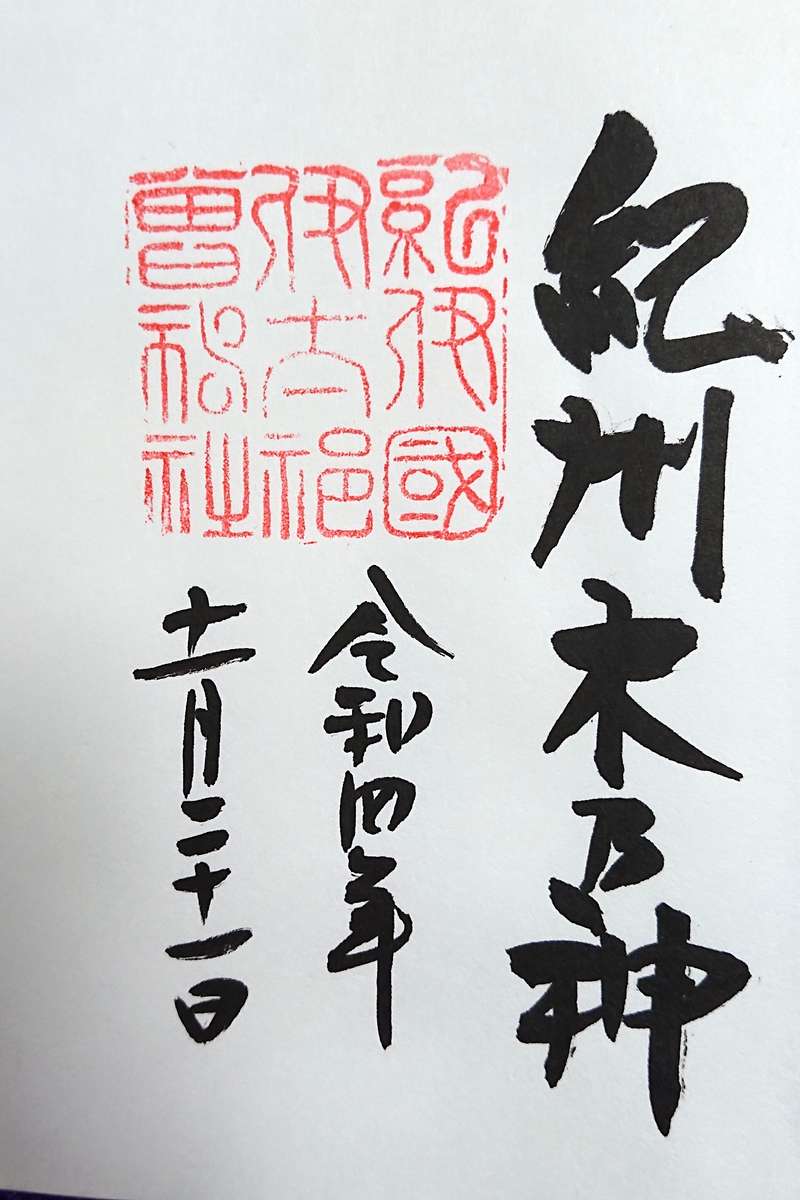 紀州木乃神
紀伊國
伊太祁
曽神社
令和四年
十一月二十一日